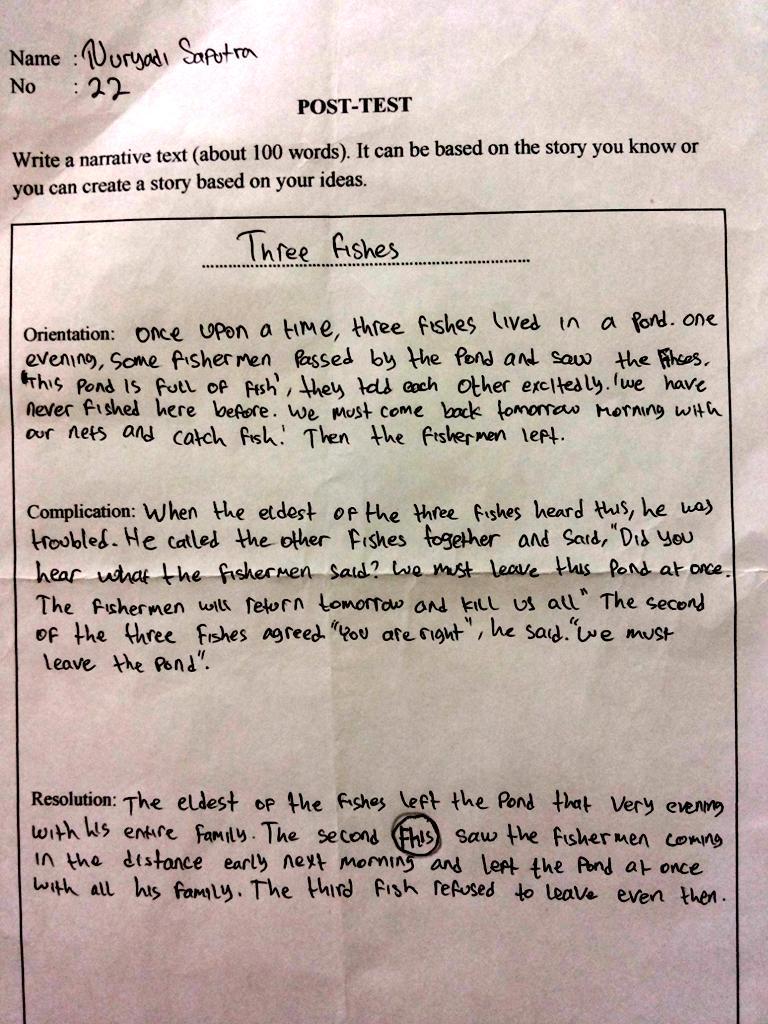 Name : Nuryadi Saputra
No : 22
POST-TEST
Write a narrative text (about 100 words). It can be based on the story you know or
you can create a story based on your ideas.
Three fishes
Orientation: Once upon a time, three fishes lived in a pond. one
evening, some fishermen passed by the pond and saw the fihses.
'This pond is full of fish', they told each other excitedly. 'we have
never fished here before. We must come back tomorrow morning with
our nets and catch fish.' Then the fishermen left.
Complication: When the eldest of the three fishes heard this, he was
troubled. He called the other fishes together and said, "Did you
hear what the fishermen said? We must leave this pond at once.
The fishermen will return tomorrow and kill us all" The second
of the three fishes agreed "You are right", he said. "We must
leave the pond".
Resolution: The eldest of the fishes left the pond that very evening
with his entire family. The second fhis saw the fishermen coming
in the distance early next morning and left the pond at once
with all his family. The third fish refused to leave even then.